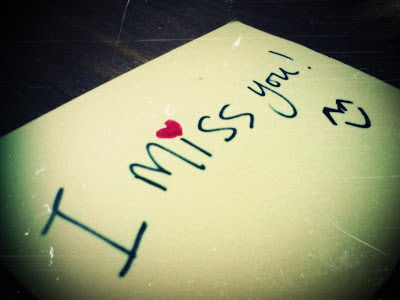 I Miss you!